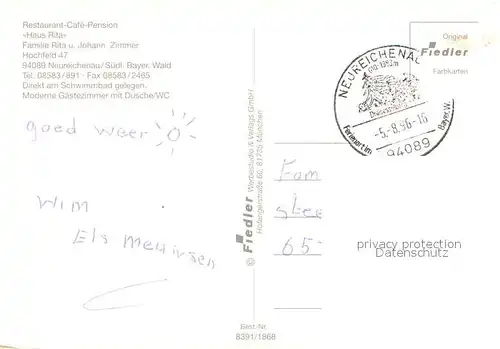 Restaurant-Café-Pension
«Haus Rita»
Familie Rita u. Johann Zimmer
Hochfeld 47
94089 Neureichenau/Südl. Bayer. Wald
Tel. 08583/891 · Fax 08583/2465
Direkt am Schwimmbad gelegen.
Moderne Gästezimmer mit Dusche/WC
goed weer
Wim
Els
© Fiedler Werbestudio & Verlags GmbH
Hofangerstraße 60, 81735 München
Best.-Nr.
8391/1868
Original
Fiedler
Farbkarten
NEUREICHENAU
-5.-8.96-16
Ferienort im Bayer. W.
94089
Fam
65
privacy protection
Datenschutz